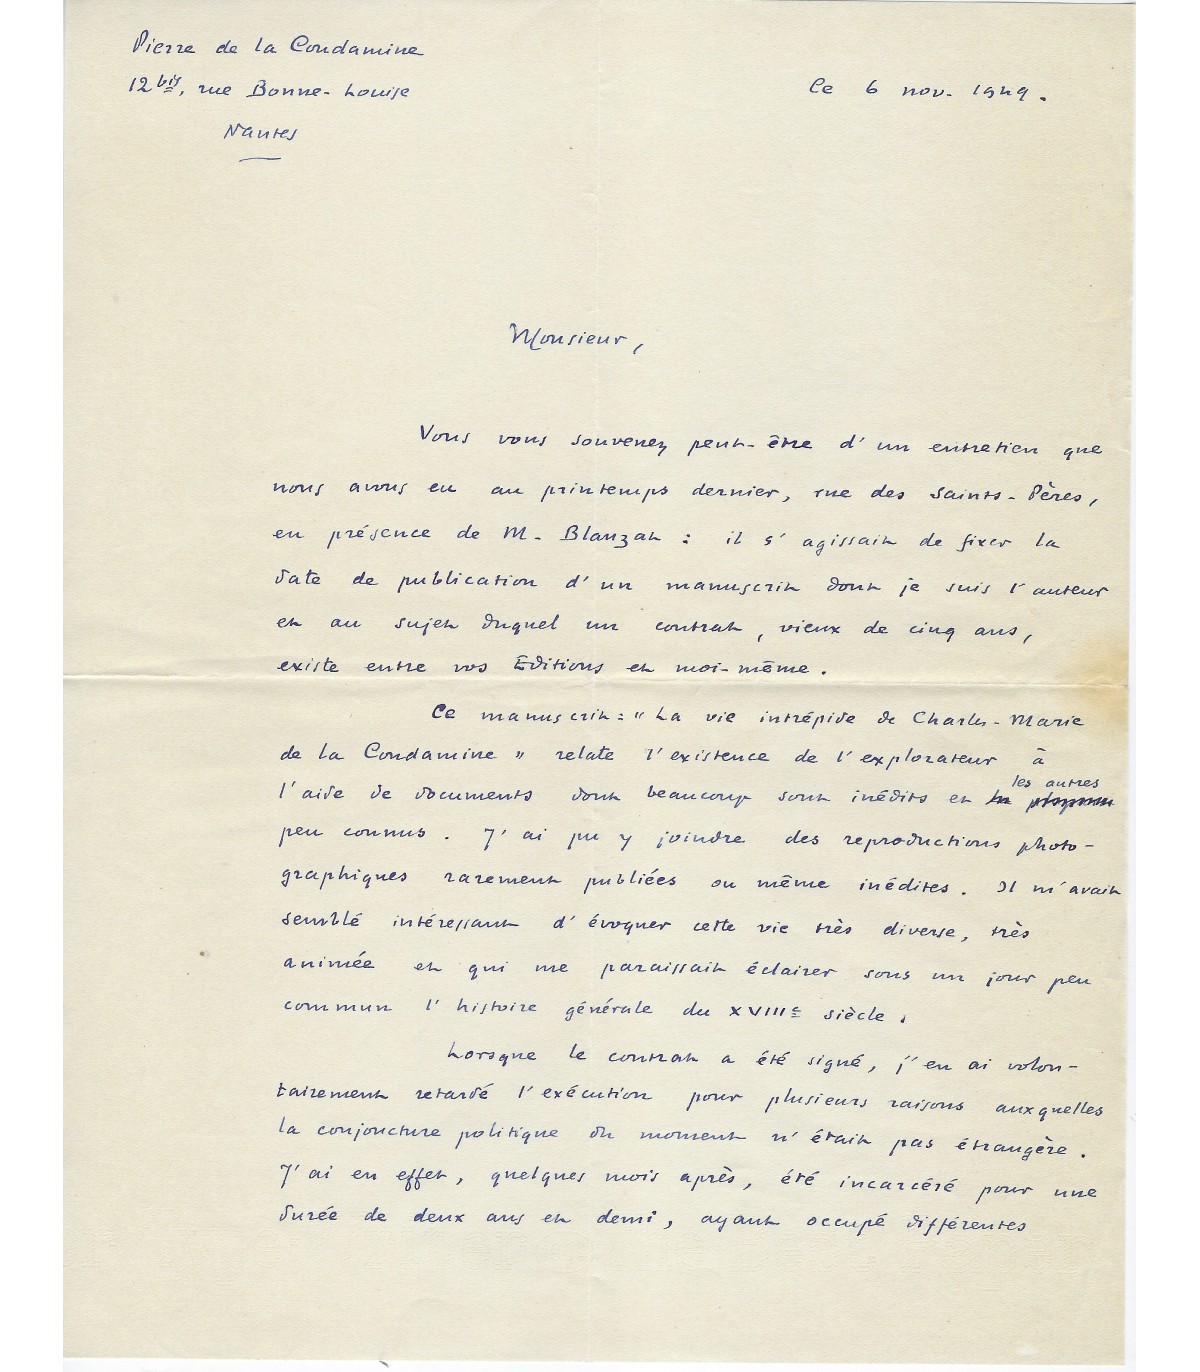 Pierre de la Condamine
12 bis, rue Bonne-Louise
Nantes
Ce 6 nov. 1949.
Monsieur,
Vous vous souvenez peut-être d'un entretien que
nous avons eu au printemps dernier, rue des Saints-Pères,
en présence de M. Blanzat : il s'agissait de fixer la
date de publication d'un manuscrit dont je suis l'auteur
et au sujet duquel un contrat, vieux de cinq ans,
existe entre vos Editions et moi-même.
Ce manuscrit : "La vie intrépide de Charles-Marie
de la Condamine" relate l'existence de l'explorateur à
l'aide de documents dont beaucoup sont inédits et les autres
peu connus. J'ai pu y joindre des reproductions photo-
graphiques rarement publiées ou même inédites. Il m'avait
semblé intéressant d'évoquer cette vie très diverse, très
animée et qui me paraissait éclairer sous un jour peu
commun l'histoire générale du XVIIIe siècle.
Lorsque le contrat a été signé, j'en ai volon-
tairement retardé l'exécution pour plusieurs raisons auxquelles
la conjoncture politique du moment n'était pas étrangère.
J'ai en effet, quelques mois après, été incarcéré pour une
durée de deux ans et demi, ayant occupé différentes